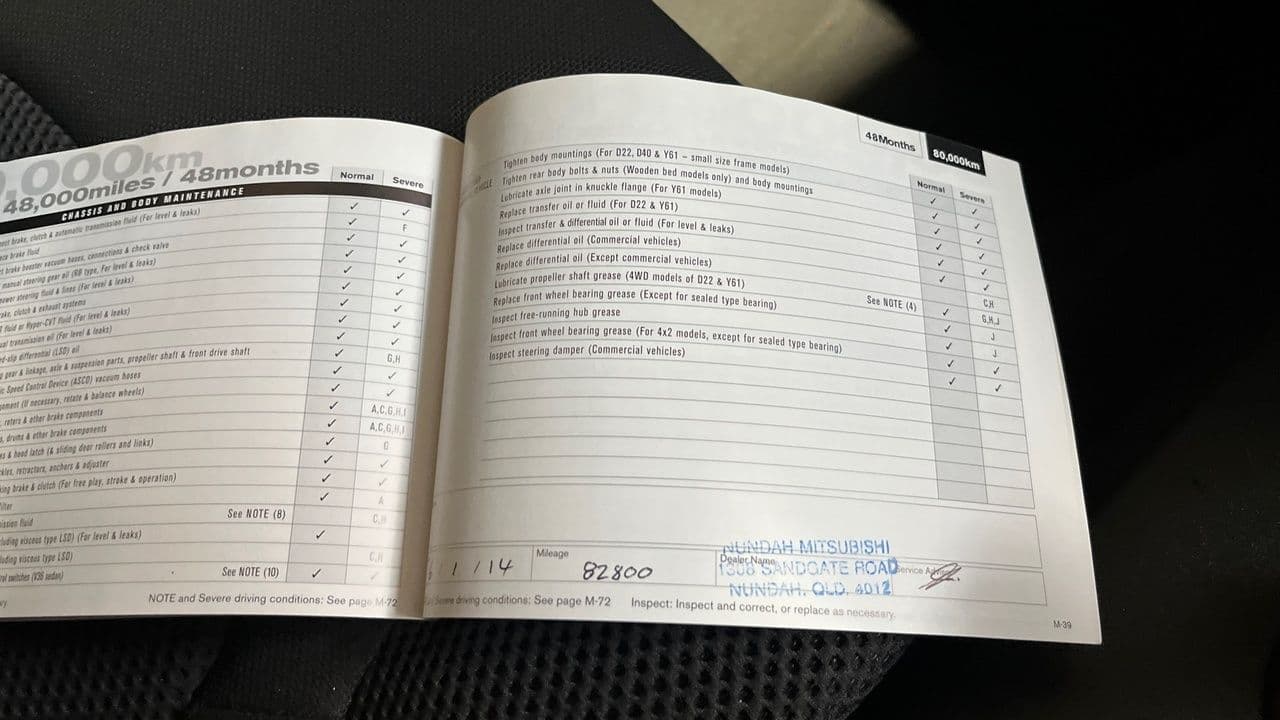 ,000km
48,000miles / 48months
Normal Severe
CHASSIS AND BODY MAINTENANCE
brake, clutch & automatic transmission fluid (For level & leaks)
brake fluid F
brake booster vacuum hoses, connections & check valve
manual steering gear oil (RB type, For level & leaks)
power steering fluid & lines (For level & leaks)
clutch & exhaust systems
fluid or Hyper-CVT fluid (For level & leaks)
transmission oil (For level & leaks)
differential (LSD) oil G,H
gear & linkage, axle & suspension parts, propeller shaft & front drive shaft
Speed Control Device (ASCD) vacuum hoses
(If necessary, rotate & balance wheels)
rotors & other brake components A,C,G,H,I
drums & other brake components A,C,G,H,I
& hood latch (& sliding door rollers and links) G
retractors, anchors & adjuster
brake & clutch (For free play, stroke & operation)
A
fluid See NOTE (8) C,H
viscous type LSD) (For level & leaks)
viscous type LSD) C,H
switches (V36 sedan) See NOTE (10)
NOTE and Severe driving conditions: See page M-72
48Months 80,000km
Normal Severe
Tighten body mountings (For D22, D40 & Y61 – small size frame models)
Tighten rear body bolts & nuts (Wooden bed models only) and body mountings
Lubricate axle joint in knuckle flange (For Y61 models)
Replace transfer oil or fluid (For D22 & Y61)
Inspect transfer & differential oil or fluid (For level & leaks)
Replace differential oil (Commercial vehicles) C,H
Replace differential oil (Except commercial vehicles) See NOTE (4) G,H,J
Lubricate propeller shaft grease (4WD models of D22 & Y61) J
Replace front wheel bearing grease (Except for sealed type bearing) J
Inspect free-running hub grease
Inspect front wheel bearing grease (For 4x2 models, except for sealed type bearing)
Inspect steering damper (Commercial vehicles)
1 / 14 Mileage 82800
Dealer Name
NUNDAH MITSUBISHI
1308 SANDGATE ROAD
NUNDAH. QLD. 4012
Service
Severe driving conditions: See page M-72 Inspect: Inspect and correct, or replace as necessary.
M-39